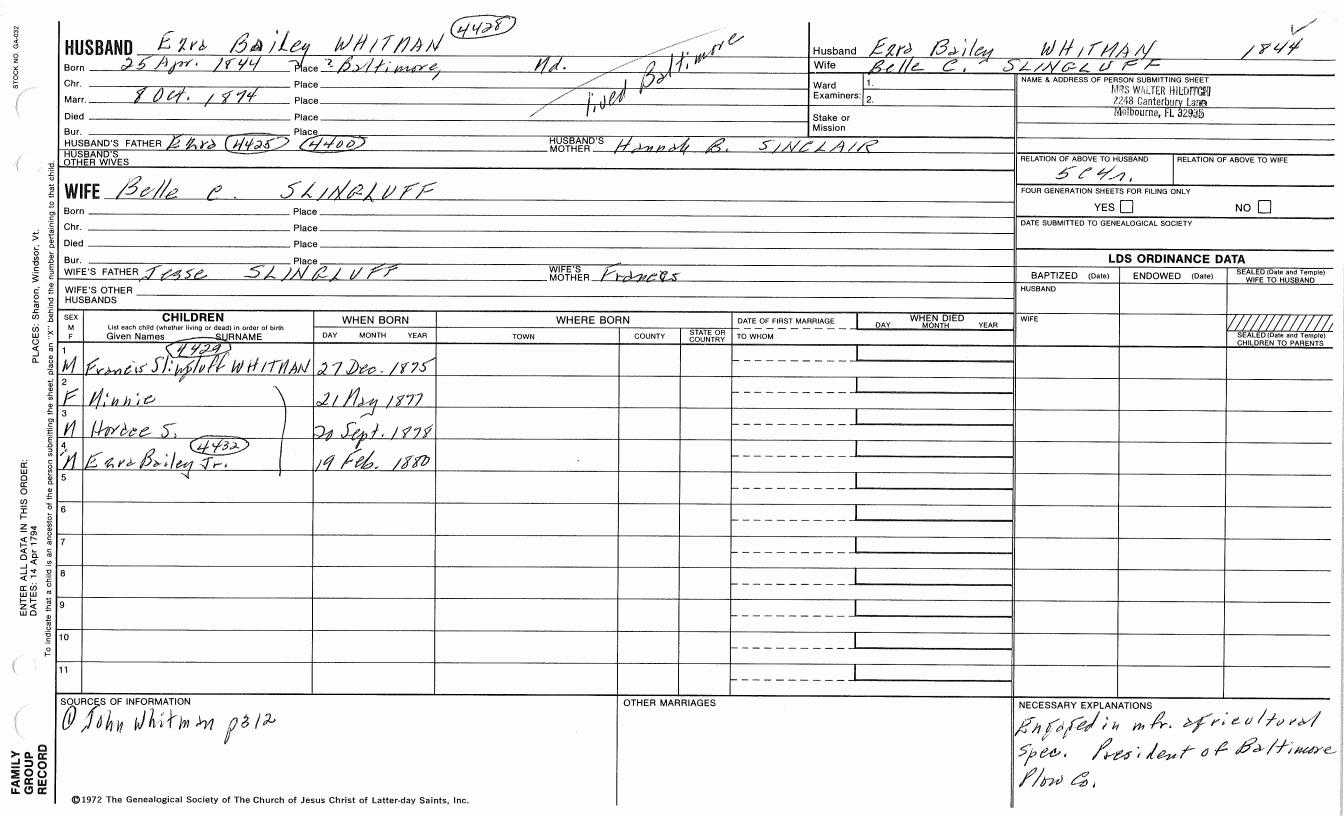 STOCK NO. GA-032
HUSBAND Ezra Bailey WHITMAN 4428
Born 25 Apr. 1844 Place ? Baltimore, Md.
Chr. Place
Marr. 8 Oct. 1874 Place
Died Place
Bur. Place
lived Baltimore
HUSBAND'S FATHER Ezra 4425 4400 HUSBAND'S MOTHER Hannah B. SINCLAIR
HUSBAND'S OTHER WIVES
WIFE Belle C. SLINGLUFF
Born Place
Chr. Place
Died Place
Bur. Place
WIFE'S FATHER Jesse SLINGLUFF WIFE'S MOTHER Frances
WIFE'S OTHER HUSBANDS
Husband Ezra Bailey WHITMAN 1844
Wife Belle C. SLINGLUFF
Ward Examiners: 1. 2.
Stake or Mission
NAME & ADDRESS OF PERSON SUBMITTING SHEET
MRS WALTER HILDITCH
2248 Canterbury Lane
Melbourne, FL 32935
RELATION OF ABOVE TO HUSBAND RELATION OF ABOVE TO WIFE
5C4r.
FOUR GENERATION SHEETS FOR FILING ONLY
YES NO
DATE SUBMITTED TO GENEALOGICAL SOCIETY
LDS ORDINANCE DATA
BAPTIZED (Date) ENDOWED (Date) SEALED (Date and Temple) WIFE TO HUSBAND
HUSBAND
WIFE
SEALED (Date and Temple) CHILDREN TO PARENTS
SEX M F CHILDREN WHEN BORN WHERE BORN DATE OF FIRST MARRIAGE WHEN DIED
List each child (whether living or dead) in order of birth
Given Names SURNAME DAY MONTH YEAR TOWN COUNTY STATE OR COUNTRY TO WHOM DAY MONTH YEAR
4429
1 M Francis Slingluff WHITMAN 27 Dec. 1875
2 F Minnie 21 May 1877
3 M Horace S. 20 Sept. 1878
4432
4 M Ezra Bailey Jr. 19 Feb. 1880
5
6
7
8
9
10
11
SOURCES OF INFORMATION
① John Whitman p312
OTHER MARRIAGES
NECESSARY EXPLANATIONS
Engaged in mfr. agricultural
Spec. President of Baltimore
Plow Co.
©1972 The Genealogical Society of The Church of Jesus Christ of Latter-day Saints, Inc.
FAMILY GROUP RECORD
ENTER ALL DATA IN THIS ORDER:
DATES: 14 Apr 1794
PLACES: Sharon, Windsor, Vt.
To indicate that a child is an ancestor of the person submitting the sheet, place an "X" behind the number pertaining to that child.